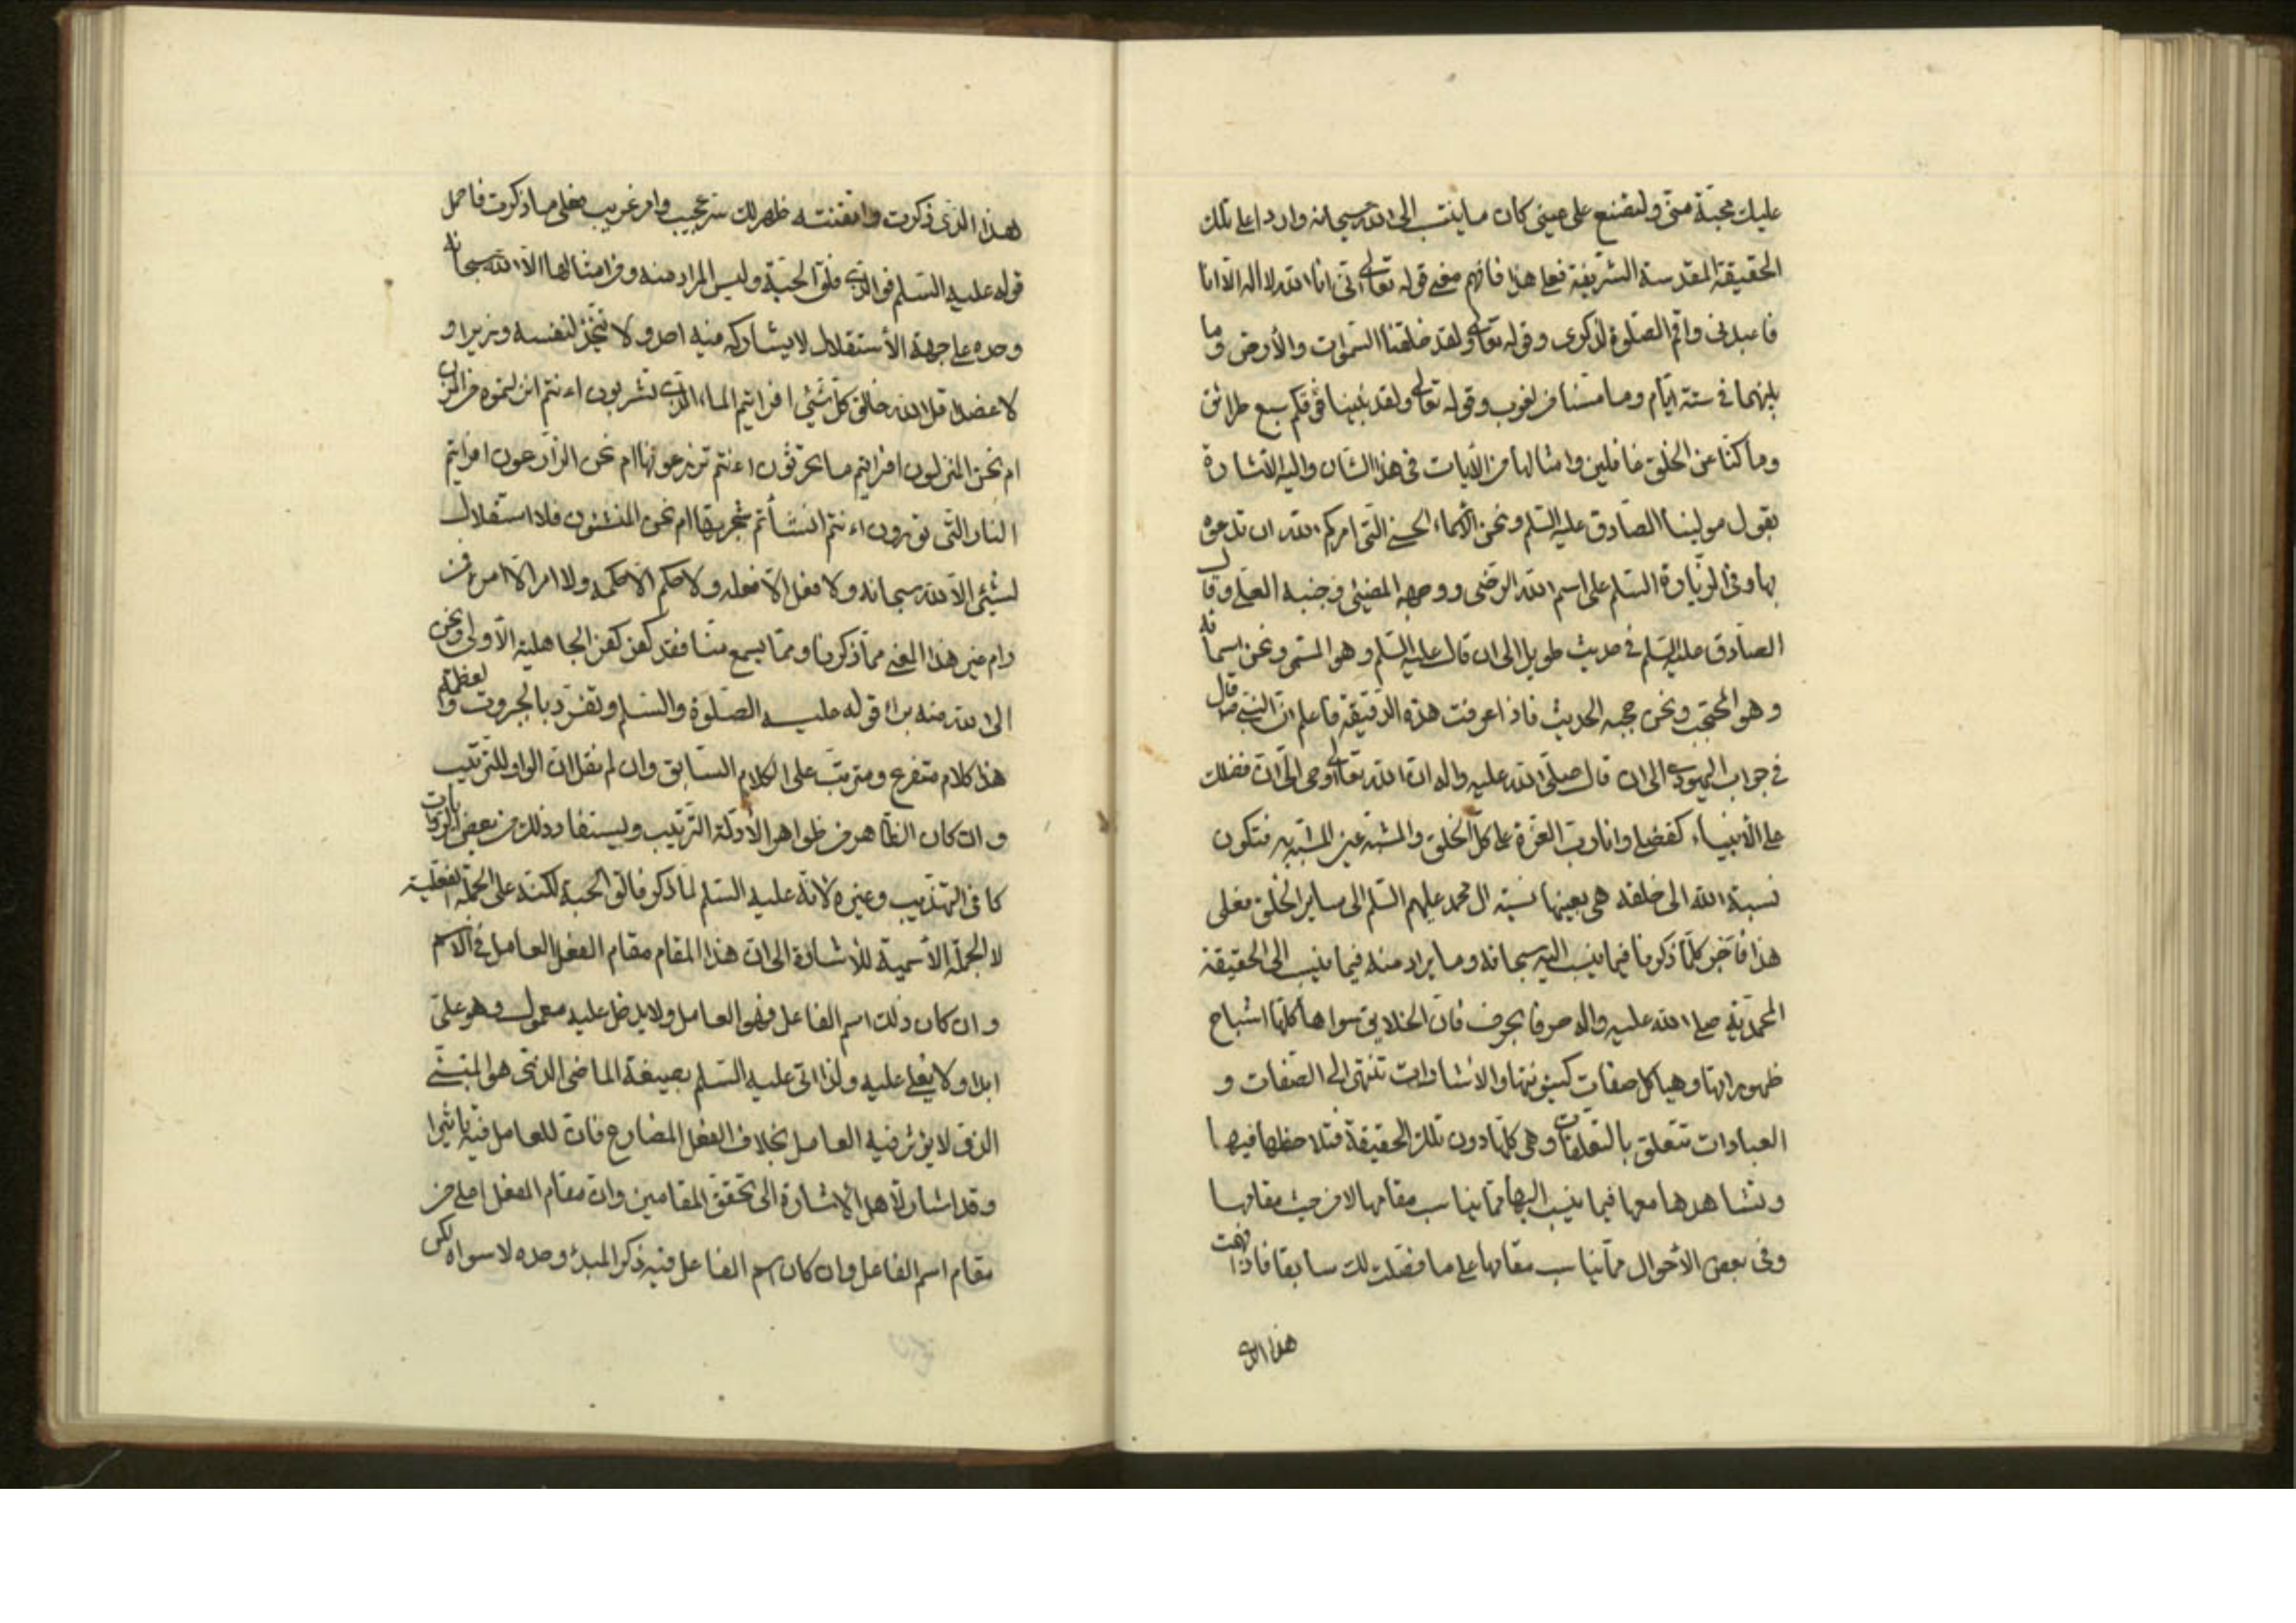 عليك محبّة منّي ولتصنع على عيني كان ما ينسب الى الله سبحانه وارد اعلى تلك
الحقيقة المقدسة الشريفة فعلى هذا فافهم معنى قوله تعالى انّني انا الله لا اله الّا انا
فاعبدني واقم الصّلوة لذكري وقوله تعالى ولقد خلقنا السّموات والأرض وما
بينهما في ستة ايّام وما مسّنا من لغوب وقوله تعالى ولقد بنينا فوقكم سبع طرائق
وما كنّا عن الخلق غافلين وامثالها من الآيات في هذا الشان واليه الاشارة
بقول مولينا الصّادق عليه السّلم ونحن الأسماء الحسنى الّتي امركم الله ان تدعوه
بها وفي الزّيارة السّلم على اسم الله الرّضي ووجهه المضيئ وجنبه العلي وقال
الصّادق عليه السّلم في حديث طويل الى ان قال عليه السّلم وهو المسمّى ونحن اسمائه
وهو المحتجب ونحن حجبه الحديث فاذا عرفت هذه الدّقيقة فاعلم انّ النبي ص قال
في جواب اليهودي الى ان قال صلّى الله عليه واله انّ الله تعالى اوحى الي انّ فضلك
على الأنبياء كفضلي وانا ربّ العزّة على كلّ الخلق والمشبّه عين المشبّه به فتكون
نسبة الله الى خلقه هي بعينها نسبة ال محمد عليهم السّلم الى ساير الخلق فعلى
هذا فأجر كلّما ذكرنا فيما ينسب اليه سبحانه وما يراد منه فيما ينسب الى الحقيقة
المحمّديّة صلى الله عليه واله حرفا بحرف فانّ الخلايق سواها كلّها اشباح
ظهوراتها وهياكل صفات كينونتها والاشارات تنتهى الى الصّفات و
العبادات تتعلق بالتعلّقات وهي كلّها دون تلك الحقيقة فتلاحظها فيها
وتشاهدها معها فيما ينسب اليها ممّا يناسب مقامها لا من حيث مقامها
وفي بعض الأحوال ممّا يناسب مقامها على ما فصّلت لك سابقا فاذا فهمت
هذا الذي
هذا الذي ذكرت واتقنته ظهر لك سرّ عجيب وامر غريب فعلى ما ذكرت فاحمل
قوله عليه السّلم فو الّذي فلق الحبّة وليس المراد منه ومن امثالها الّا الله سبحانه
وحده على جهة الأستقلال لا يشاركه فيه احد ولا يتّخذ لنفسه وزيرا و
لا عضدا قل الله خالق كلّ شيئ افرايتم الماء الّذي تشربون ءانتم انزلتموه من المزن
ام نحن المنزلون افرايتم ما تحرثون ءانتم تزرعونها ام نحن الزّارعون افرايتم
النار الّتي تورون ءانتم انشأتم شجرتها ام نحن المنشئون فلا استقلال
لشيئ الّا لله سبحانه ولا فعل الّا فعله ولا حكم الّا حكمه ولا امر الّا امره فمن
رام غير هذا المعنى ممّا ذكرنا وممّا يسمع منّا فقد كفر كفر الجاهلية الأولى ونحن
الى الله منه براء قوله عليه الصّلوة والسّلم وتفرّد بالجبروت والعظمة
هذا كلام متفرع ومترتب على الكلام السّابق وان لم نقل انّ الواو للتّرتيب
وان كان الظّاهر من ظواهر الأدلّة التّرتيب ويستفاد ذلك من بعض الرّوايات
كما في التّهذيب وغيره لانّه عليه السّلم لمّا ذكر فالق الحبة لكنّه على الجملة الفعليّة
لا الجملة الأسميّة للأشارة الى انّ هذا المقام مقام الفعل العامل في الاسم
وان كان ذلك اسم الفاعل فهو العامل ولا يدخل عليه معمول وهو عليّ
ابدا ولا يعلى عليه ولذا اتى عليه السّلم بصيغة الماضي الّذي هو المبني
الّذي لا يؤثر فيه العامل بخلاف الفعل المضارع فانّ للعامل فيه تأثيرا
وقد اشار لأهل الأشارة الى تحقق المقامين وانّ مقام الفعل اعلى من
مقام اسم الفاعل وان كان اسم الفاعل فيه ذكر المبدء وحده لا سواه لكن